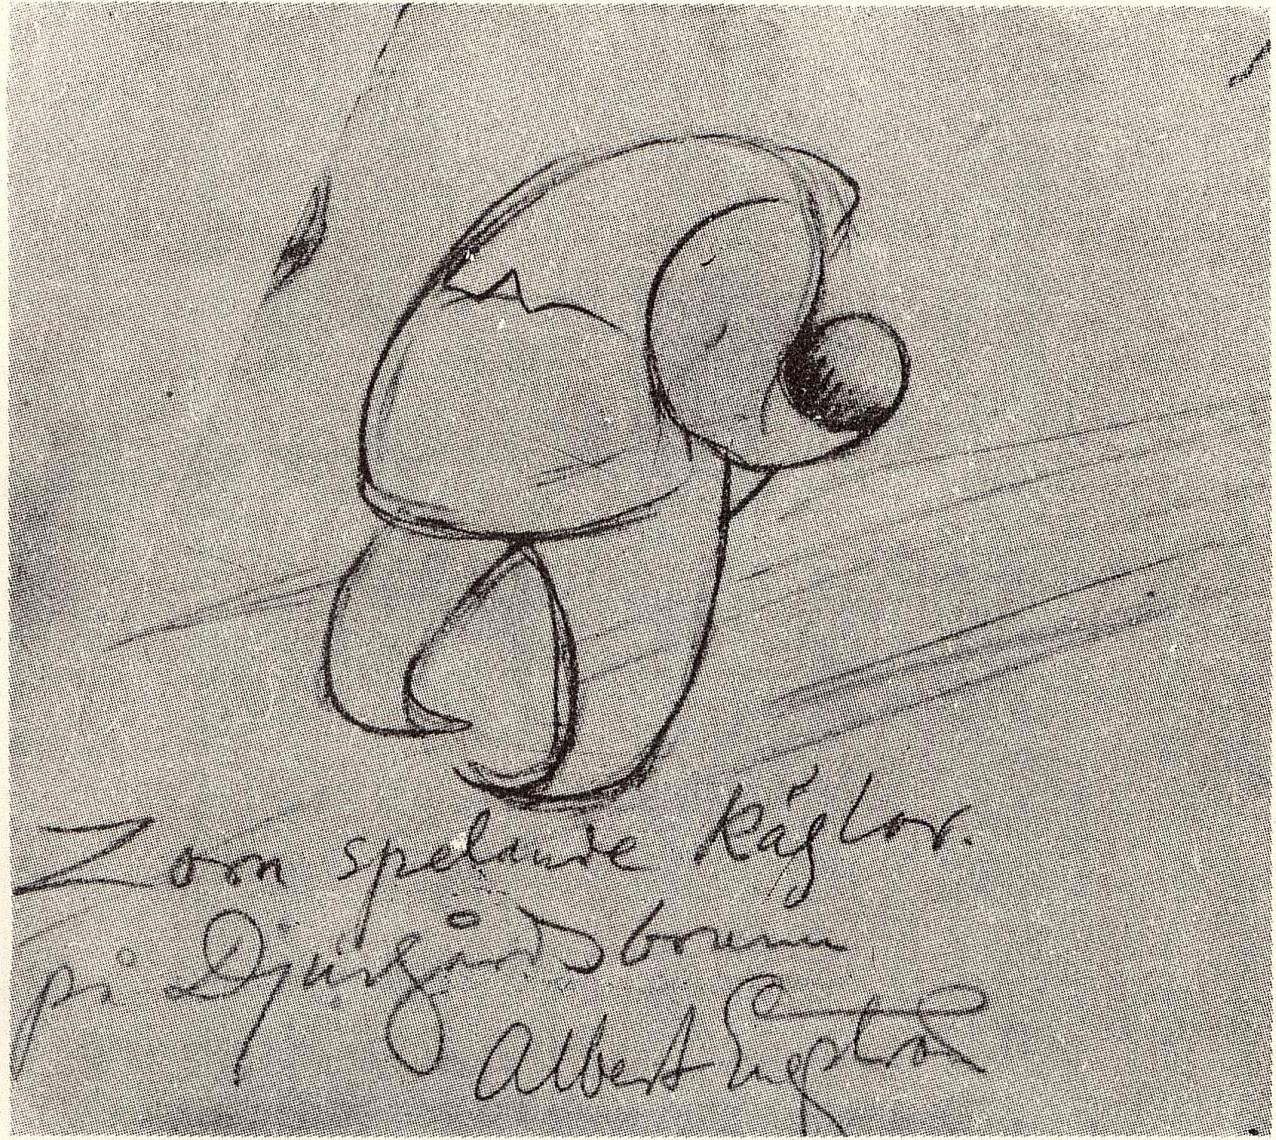 Zorn spelande käglor.
på Djurgårdsbrunn
Albert Engström